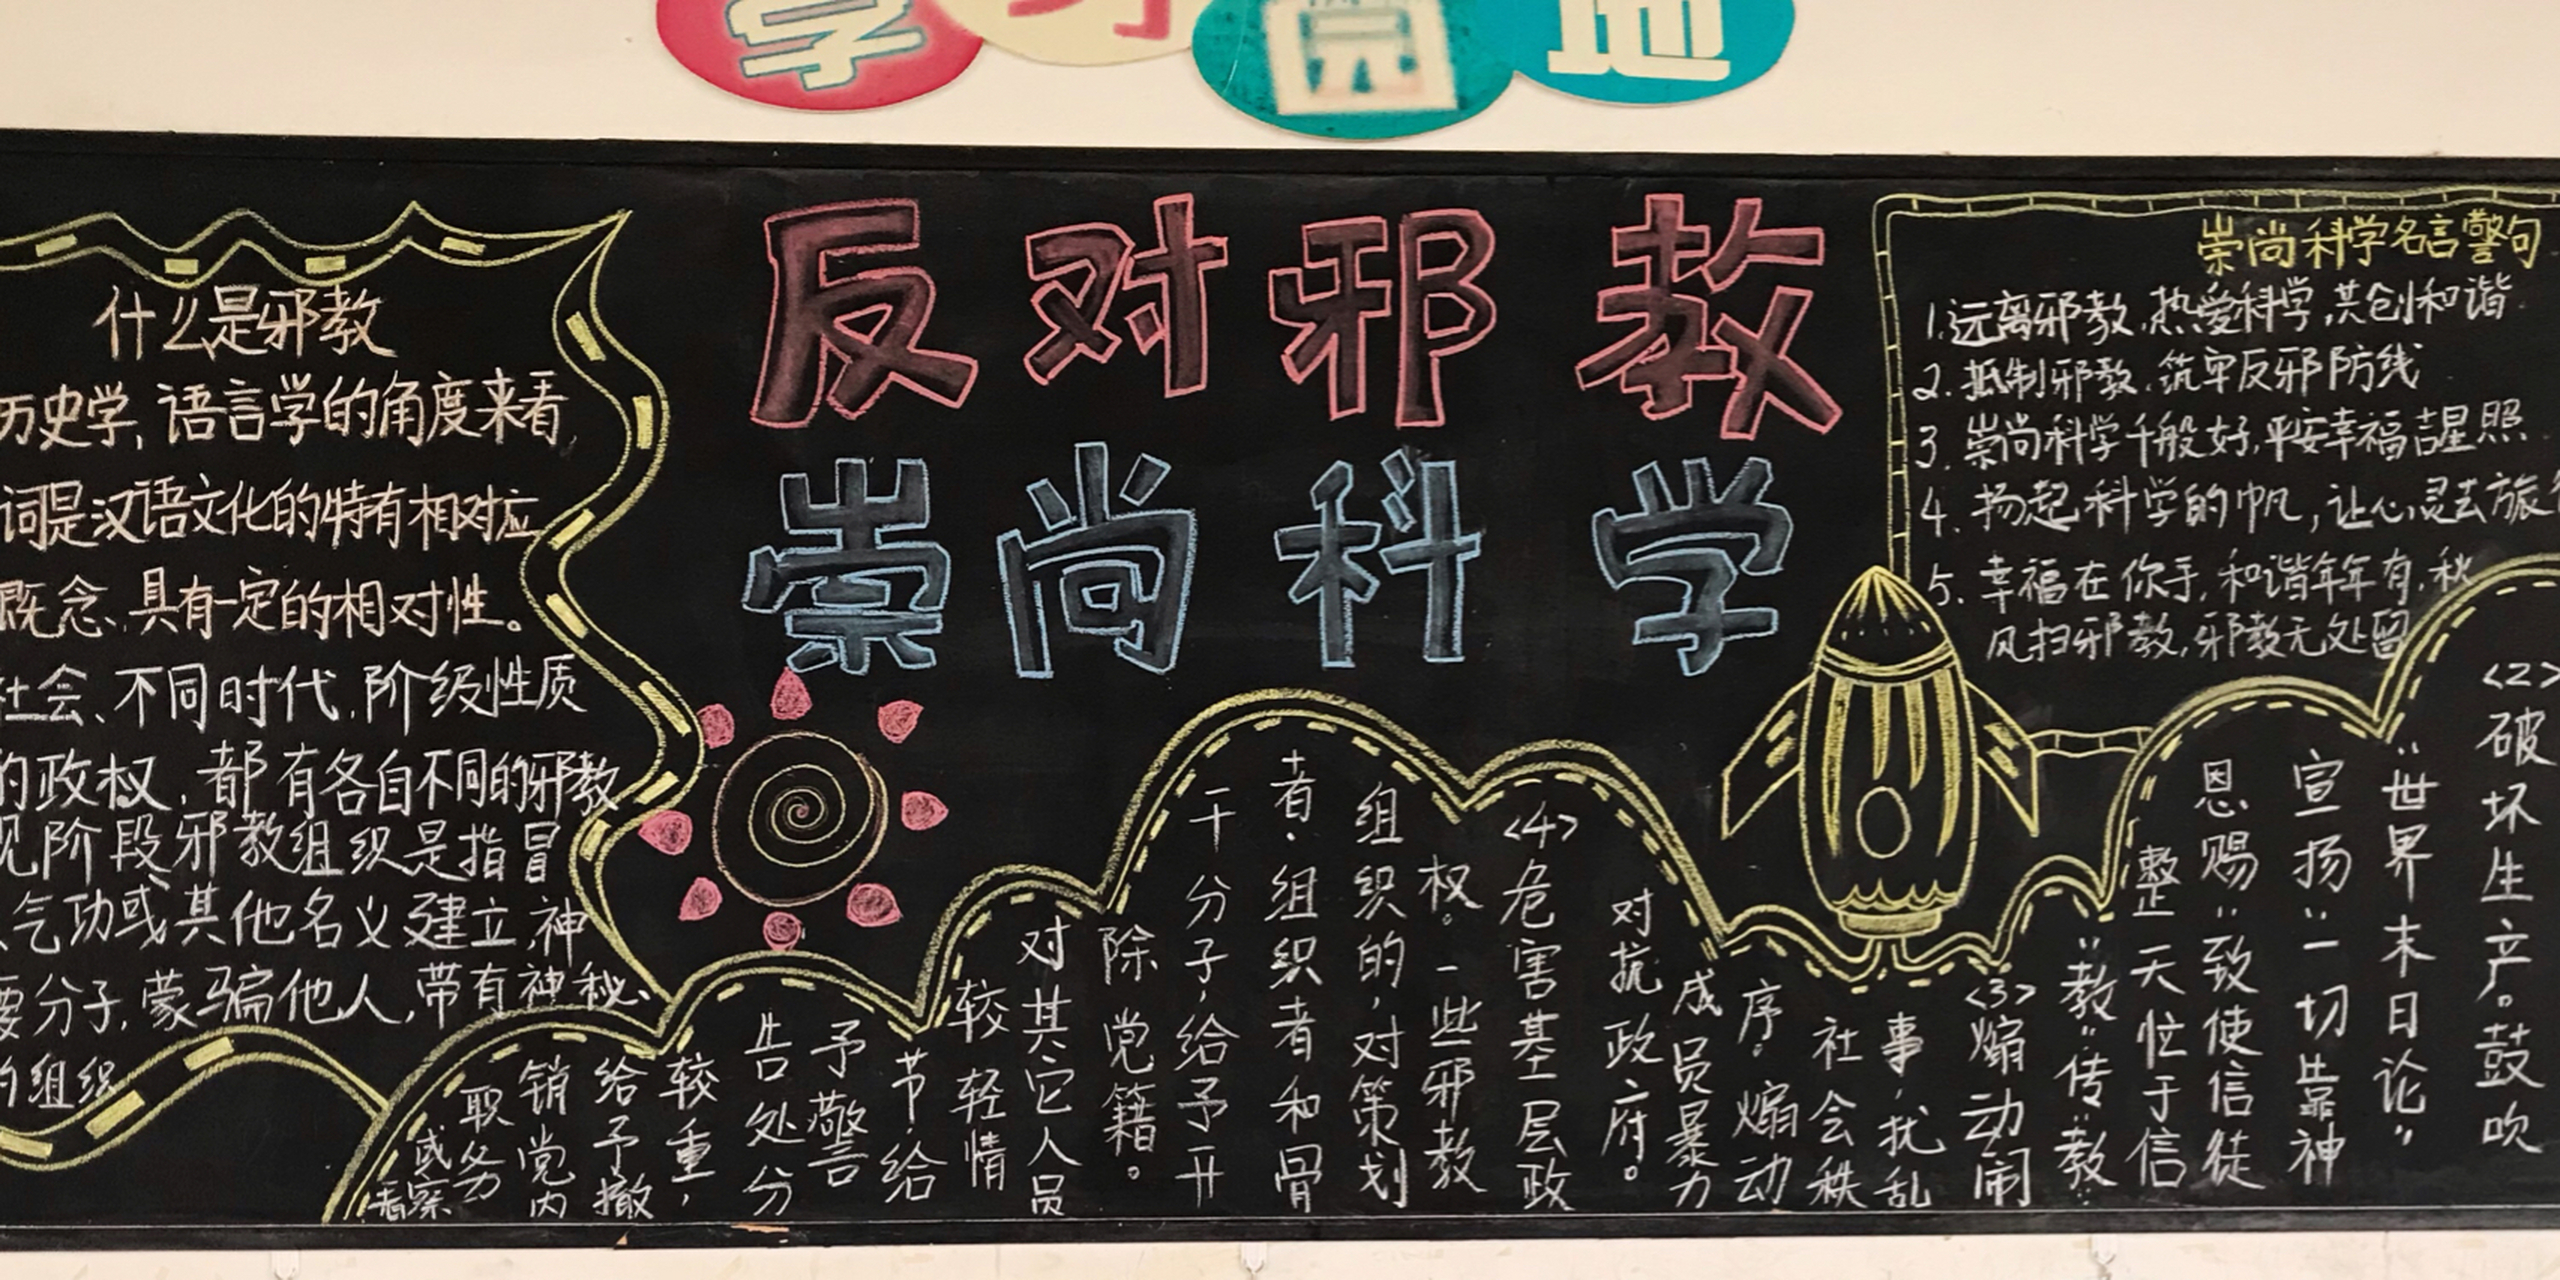 学习园地
反对邪教
崇尚科学
什么是邪教
历史学,语言学的角度来看,
词是汉语文化的特有相对应
概念、具有一定的相对性。
社会、不同时代,阶级性质
的政权,都有各自不同的邪教
现阶段邪教组织是指冒
气功或其他名义建立,神
要分子,蒙骗他人,带有神秘、
的组织
崇尚科学名言警句
1.远离邪教,热爱科学,共创和谐
2.抵制邪教,筑牢反邪防线
3.崇尚科学千般好,平安幸福吉星照
4.扬起科学的帆,让心灵去旅
5.幸福在你手,和谐年年有,秋
风扫邪教,邪教无处留
<2>破坏生产。鼓吹
“世界末日论”
宣扬“一切靠神
恩赐”致使信徒
整天忙于信
“教”传“教”
<3>煽动闹
事,扰乱
社会秩
序。煽动
成员暴力
对抗政府。
<4>危害基层政
权。一些邪教
组织的,对策划
者.组织者和骨
干分子,给予开
除党籍。
对其它人员
较轻情
节,给
予警
告处分
较重,
给予撤
销党内
职务
或察